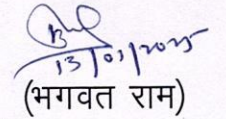 13/01/2025
(भगवत राम)